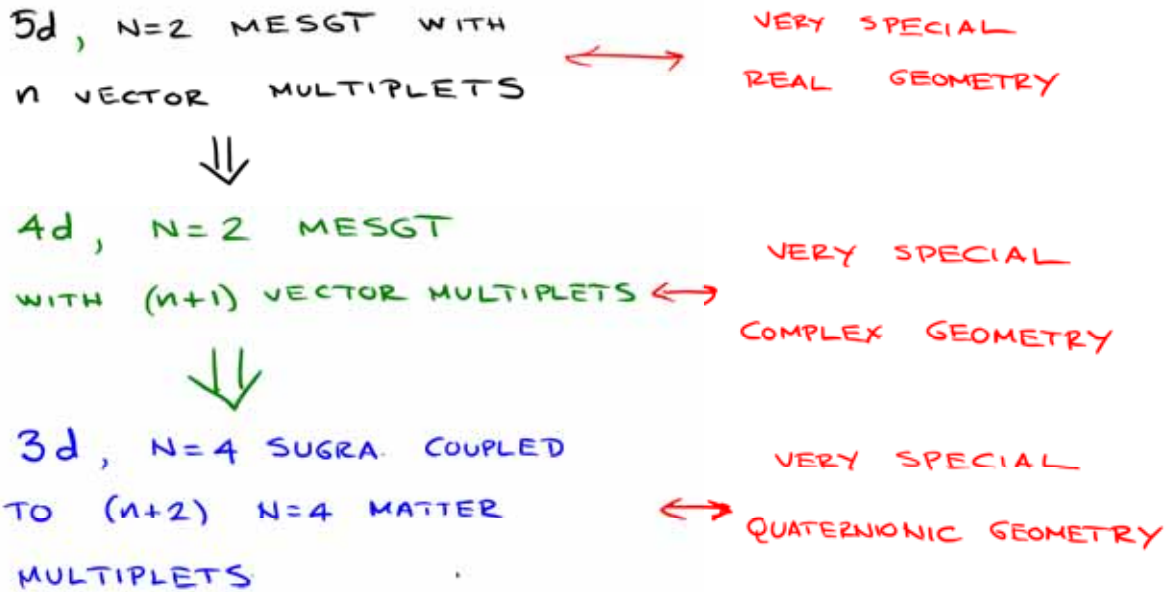 5d, N=2 MESGT WITH
n VECTOR MULTIPLETS
VERY SPECIAL
REAL GEOMETRY
4d, N=2 MESGT
WITH (n+1) VECTOR MULTIPLETS
VERY SPECIAL
COMPLEX GEOMETRY
3d, N=4 SUGRA. COUPLED
TO (n+2) N=4 MATTER
MULTIPLETS
VERY SPECIAL
QUATERNIONIC GEOMETRY